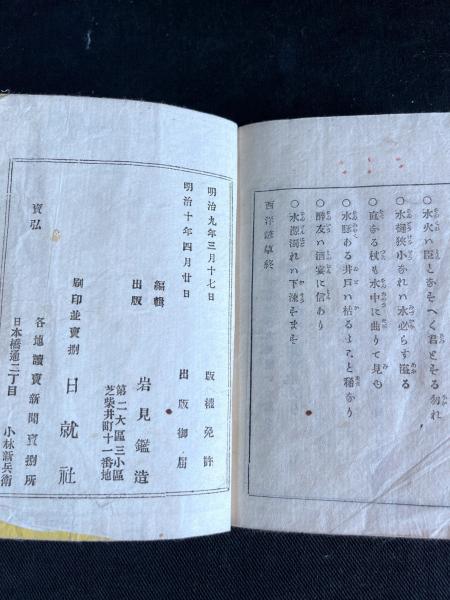 ○水火ハ臣となそへく君とそる勿れ
○水樋狭小なれハ水必らす溢る
○直なる杖も水中に曲りて見も
○水豚ある井戸ハ枯るゝこと稀なり
○酔友ハ酒宴に信あり
○水源濁れハ下流そまそ
西洋諺草終
明治九年三月十七日 版權免許
明治十年四月廿日 出版御届
編輯出版 岩見鑑造
第二大區三小區
芝柴井町十一番地
刷印並賣捌 日就社
賣弘 各地讀賣新聞賣捌所
日本橋通二丁目 小林新兵衛